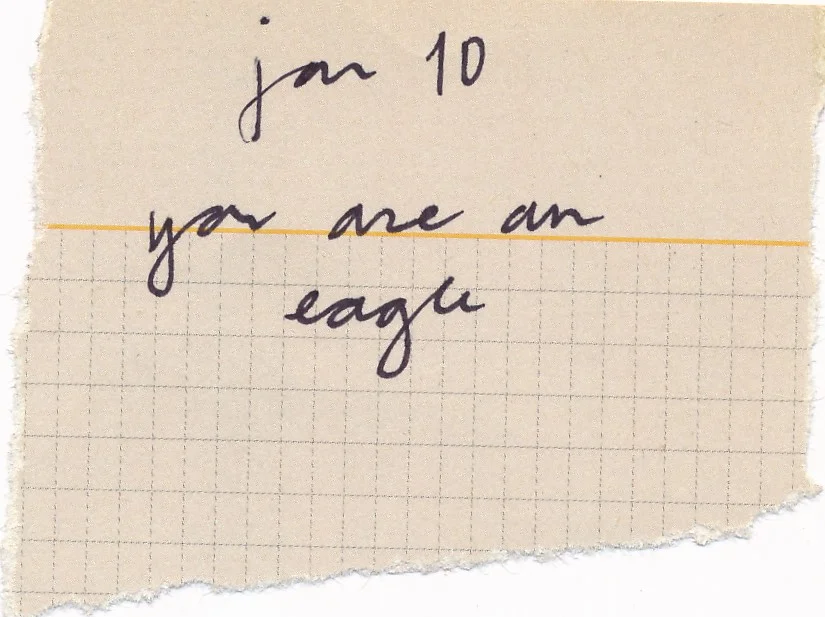 jan 10
you are an
eagle